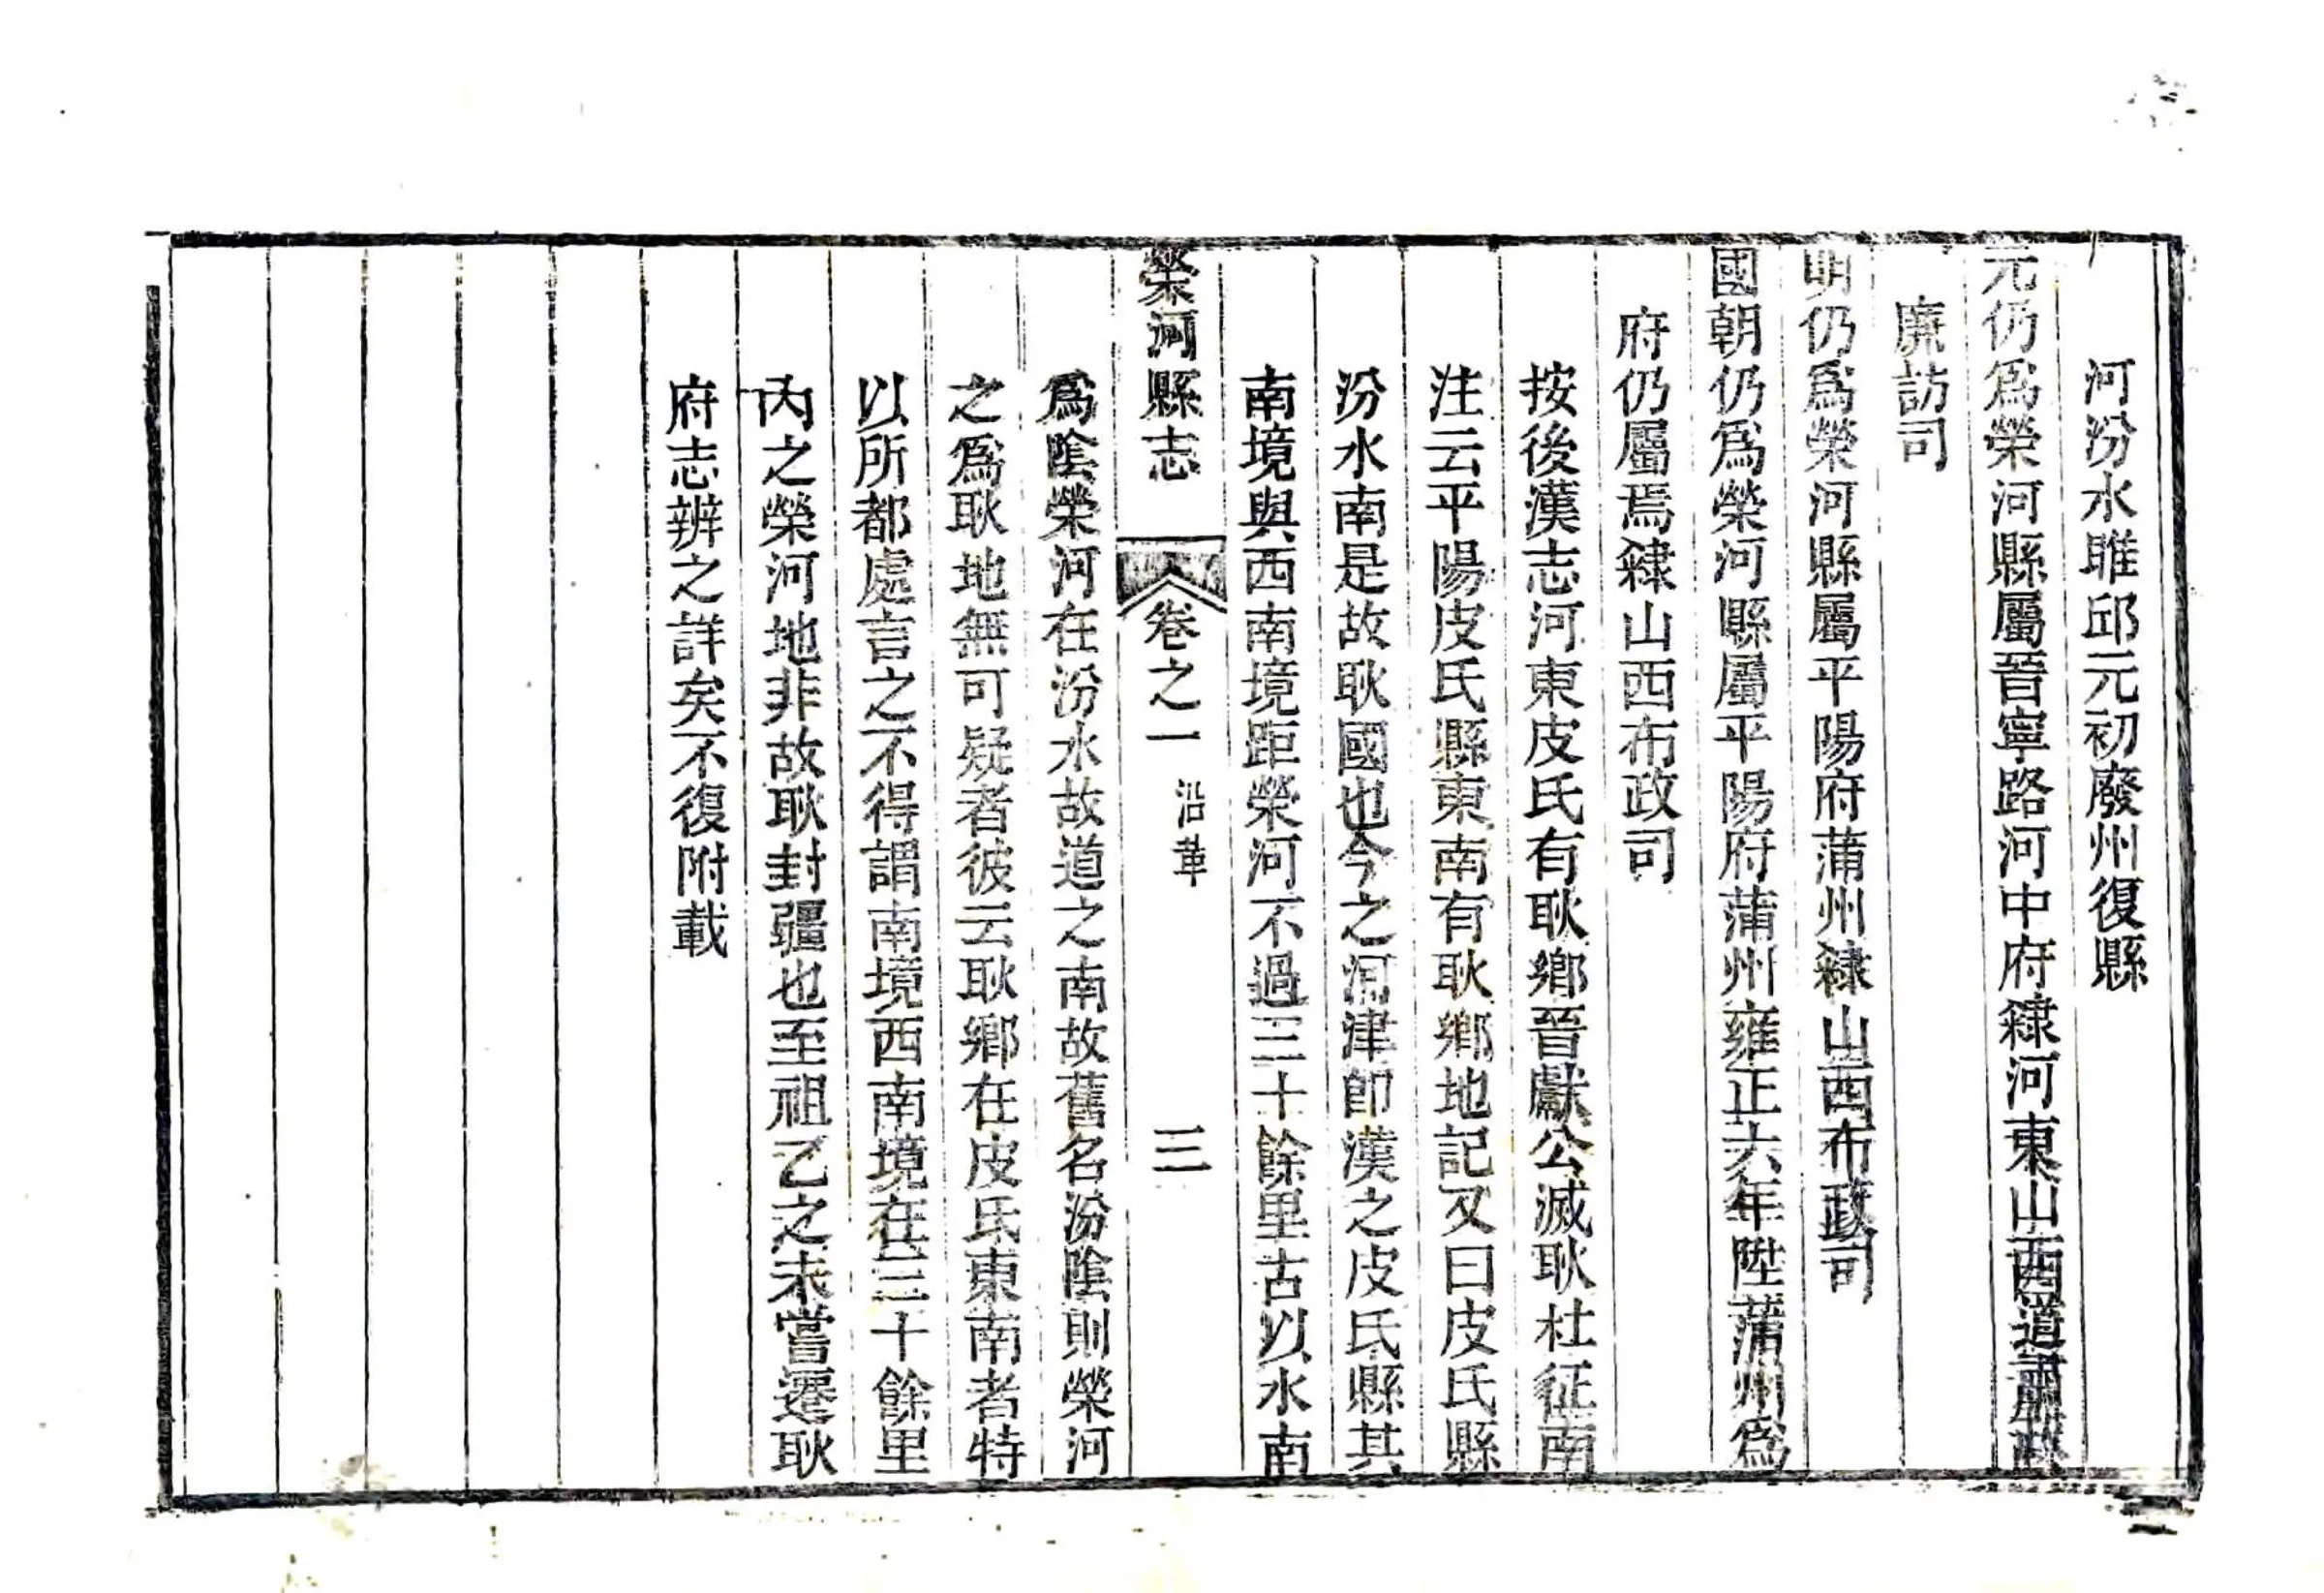 河汾水睢邱元初廢州復縣
元仍爲榮河縣屬晉寧路河中府隸河東山西道肅政
廉訪司
明仍爲榮河縣屬平陽府蒲州隸山西布政司
國朝仍爲榮河縣屬平陽府蒲州雍正六年陞蒲州爲
府仍屬焉隸山西布政司
按後漢志河東皮氏有耿鄉晉獻公滅耿杜征南
注云平陽皮氏縣東南有耿鄉地記又曰皮氏縣
汾水南是故耿國也今之河津卽漢之皮氏縣其
南境與西南境距榮河不過三十餘里古以水南
榮河縣志 卷之一 沿革 三
爲陰榮河在汾水故道之南故舊名汾陰則榮河
之爲耿地無可疑者彼云耿鄉在皮氏東南者特
以所都處言之不得謂南境西南境在三十餘里
內之榮河地非故耿封疆也至祖乙之未嘗遷耿
府志辨之詳矣不復附載